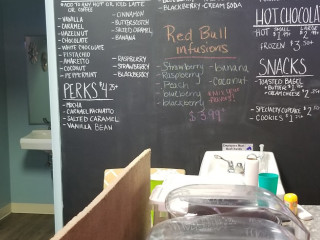 * ADD TO ANY HOT OR ICED LATTE
OR COFFEE
- VANILLA
- CARAMEL
- HAZELNUT
- CHOCOLATE
- WHITE CHOCOLATE
- PISTACHIO
- AMARETTO
- COCONUT
- PEPPERMINT
- CINNAMON
- BUTTERSCOTCH
- SALTED CARAMEL
- BANANA
- RASPBERRY
- STRAWBERRY
- BLACKBERRY
PERKS $4.25+
- MOCHA
- CARAMEL MACCHIATO
- SALTED CARAMEL
- VANILLA BEAN
- BLACKBERRY CREAM SODA
Red Bull
infusions
- Strawberry
- Raspberry
- Peach
- blueberry
- blackberry
- banana
- Coconut
$3.99+
HOT CHOCOLATE
HOT
FROZEN $3.50+
SNACKS
- TOASTED BAGEL
+ BUTTER
+ CREAM CHEESE
- SPECIALTY CUPCAKE
- COOKIES